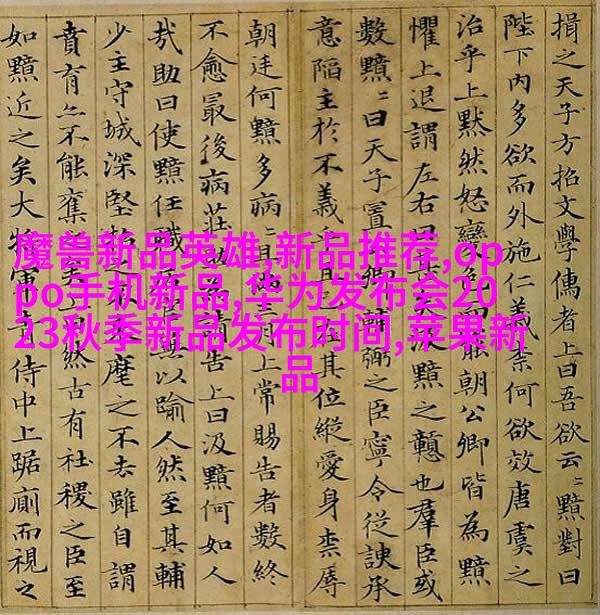 魔兽新品英雄,新品推荐,op
po手机新品,华为发布会20
23秋季新品发布时间,苹果新
品
揖之天子方招文學儒者上曰吾欲云〻黯對曰
陛下內多欲而外施仁義柰何欲效唐虞之
治乎上默然怒變色而罷朝公卿皆為黯
懼上退謂左右曰甚矣汲黯之戇也羣臣或
數黯〻曰天子置公卿輔弼之臣寧令從諛承
意陷主於不義乎且其位縱愛身柰辱
朝廷何黯多病〻且滿三月上常賜告者數終
不愈最後病莊助為請告上曰汲黯何如人
哉助曰使黯任職以踰人然至其輔
少主守城深堅招之麾之不去雖自謂
賁育亦不能奪之然古有社稷之臣至
如黯近之矣大將軍青侍中上踞廁而視之